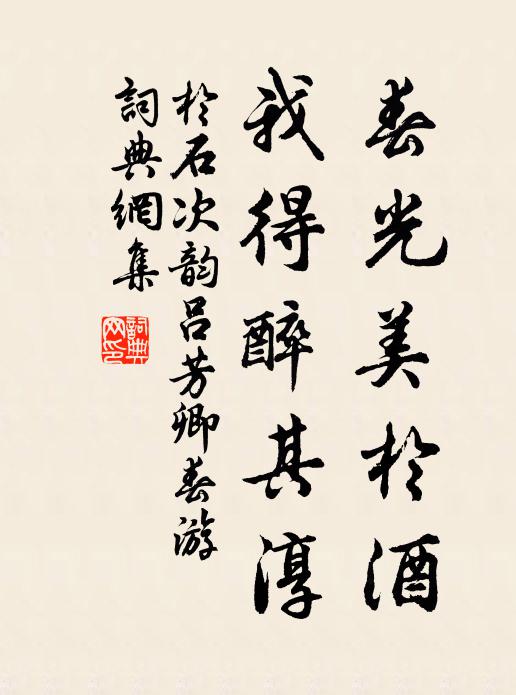 春光美於酒
我得醉其淳
於石次韵吕芳卿春游
詞典網集
詞典
网印